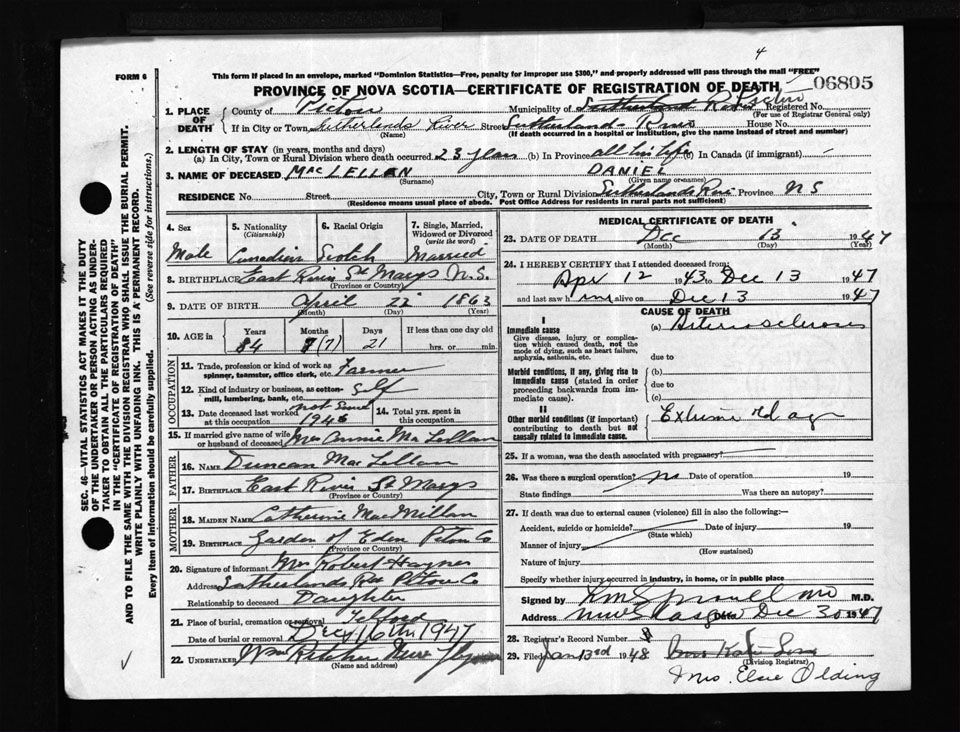 4
FORM 6
This form if placed in an envelope, marked "Dominion Statistics—Free, penalty for improper use $300," and properly addressed will pass through the mail "FREE"
PROVINCE OF NOVA SCOTIA—CERTIFICATE OF REGISTRATION OF DEATH
06805
1. PLACE OF DEATH
County of Pictou
Municipality of Sutherland River Pictou Registered No.
(For use of Registrar General only)
If in City or Town Sutherlands River Street Sutherlands River House No.
(Name) (If death occurred in a hospital or institution, give the name instead of street and number)
2. LENGTH OF STAY (in years, months and days)
(a) In City, Town or Rural Division where death occurred 23 years (b) In Province all his life (c) In Canada (if immigrant) —
3. NAME OF DECEASED MacLELLAN DANIEL
(Surname) (Given name or names)
RESIDENCE No. Street City, Town or Rural Division Sutherlands River Province NS
(Residence means usual place of abode. Post Office Address for residents in rural parts not sufficient)
4. Sex
Male
5. Nationality
(Citizenship)
Canadian
6. Racial Origin
Scotch
7. Single, Married, Widowed or Divorced
(write the word)
Married
8. BIRTHPLACE East River St Marys N.S.
(Province or Country)
9. DATE OF BIRTH April 22 1863
(Month) (Day) (Year)
10. AGE in
Years Months Days If less than one day old
84 7(7) 21 hrs. or min.
OCCUPATION
11. Trade, profession or kind of work as spinner, teamster, office clerk, etc. Farmer
12. Kind of industry or business, as cotton-mill, lumbering, bank, etc. Self
13. Date deceased last worked at this occupation not since 1946
14. Total yrs. spent in this occupation
15. If married give name of wife or husband of deceased Mrs Annie MacLellan
FATHER
16. NAME Duncan MacLellan
17. BIRTHPLACE East River St Marys
(Province or Country)
MOTHER
18. MAIDEN NAME Catherine MacMillan
19. BIRTHPLACE Garden of Eden Pictou Co
(Province or Country)
20. Signature of informant Mrs Robert Haynes
Address Sutherlands River Pictou Co
Relationship to deceased Daughter
21. Place of burial, cremation or removal Telford
Date of burial or removal Dec 16th 1947
22. UNDERTAKER Wm
(Name and address)
MEDICAL CERTIFICATE OF DEATH
23. DATE OF DEATH Dec 13 1947
(Month) (Day) (Year)
24. I HEREBY CERTIFY that I attended deceased from:
Apr 12 1943 to Dec 13 1947
and last saw him alive on Dec 13 1947
CAUSE OF DEATH
I
Immediate cause
Give disease, injury or complication which caused death, not the mode of dying, such as heart failure, asphyxia, asthenia, etc.
(a) Arteriosclerosis
due to
Morbid conditions, if any, giving rise to immediate cause (stated in order proceeding backwards from immediate cause).
(b)
due to
(c)
II
Other morbid conditions (if important) contributing to death but not causally related to immediate cause.
Extreme old age
25. If a woman, was the death associated with pregnancy?
26. Was there a surgical operation? no Date of operation 19
State findings Was there an autopsy?
27. If death was due to external causes (violence) fill in also the following:—
Accident, suicide or homicide? Date of injury 19
(State which)
Manner of injury
(How sustained)
Nature of injury
Specify whether injury occurred in industry, in home, or in public place
Signed by M.D.
Address New Glasgow Date Dec 30 1947
28. Registrar's Record Number
29. Filed Jan 3rd 1948
(Division Registrar)
Mrs. Elsie Olding
SEC. 46—VITAL STATISTICS ACT MAKES IT THE DUTY
OF THE UNDERTAKER OR PERSON ACTING AS UNDERTAKER TO OBTAIN ALL THE PARTICULARS REQUIRED
IN THE "CERTIFICATE OF REGISTRATION OF DEATH" AND
TO FILE THE SAME WITH THE DIVISION REGISTRAR WHO SHALL ISSUE THE BURIAL PERMIT.
WRITE PLAINLY WITH UNFADING INK. THIS IS A PERMANENT RECORD.
Every item of information should be carefully supplied. (See reverse side for instructions.)